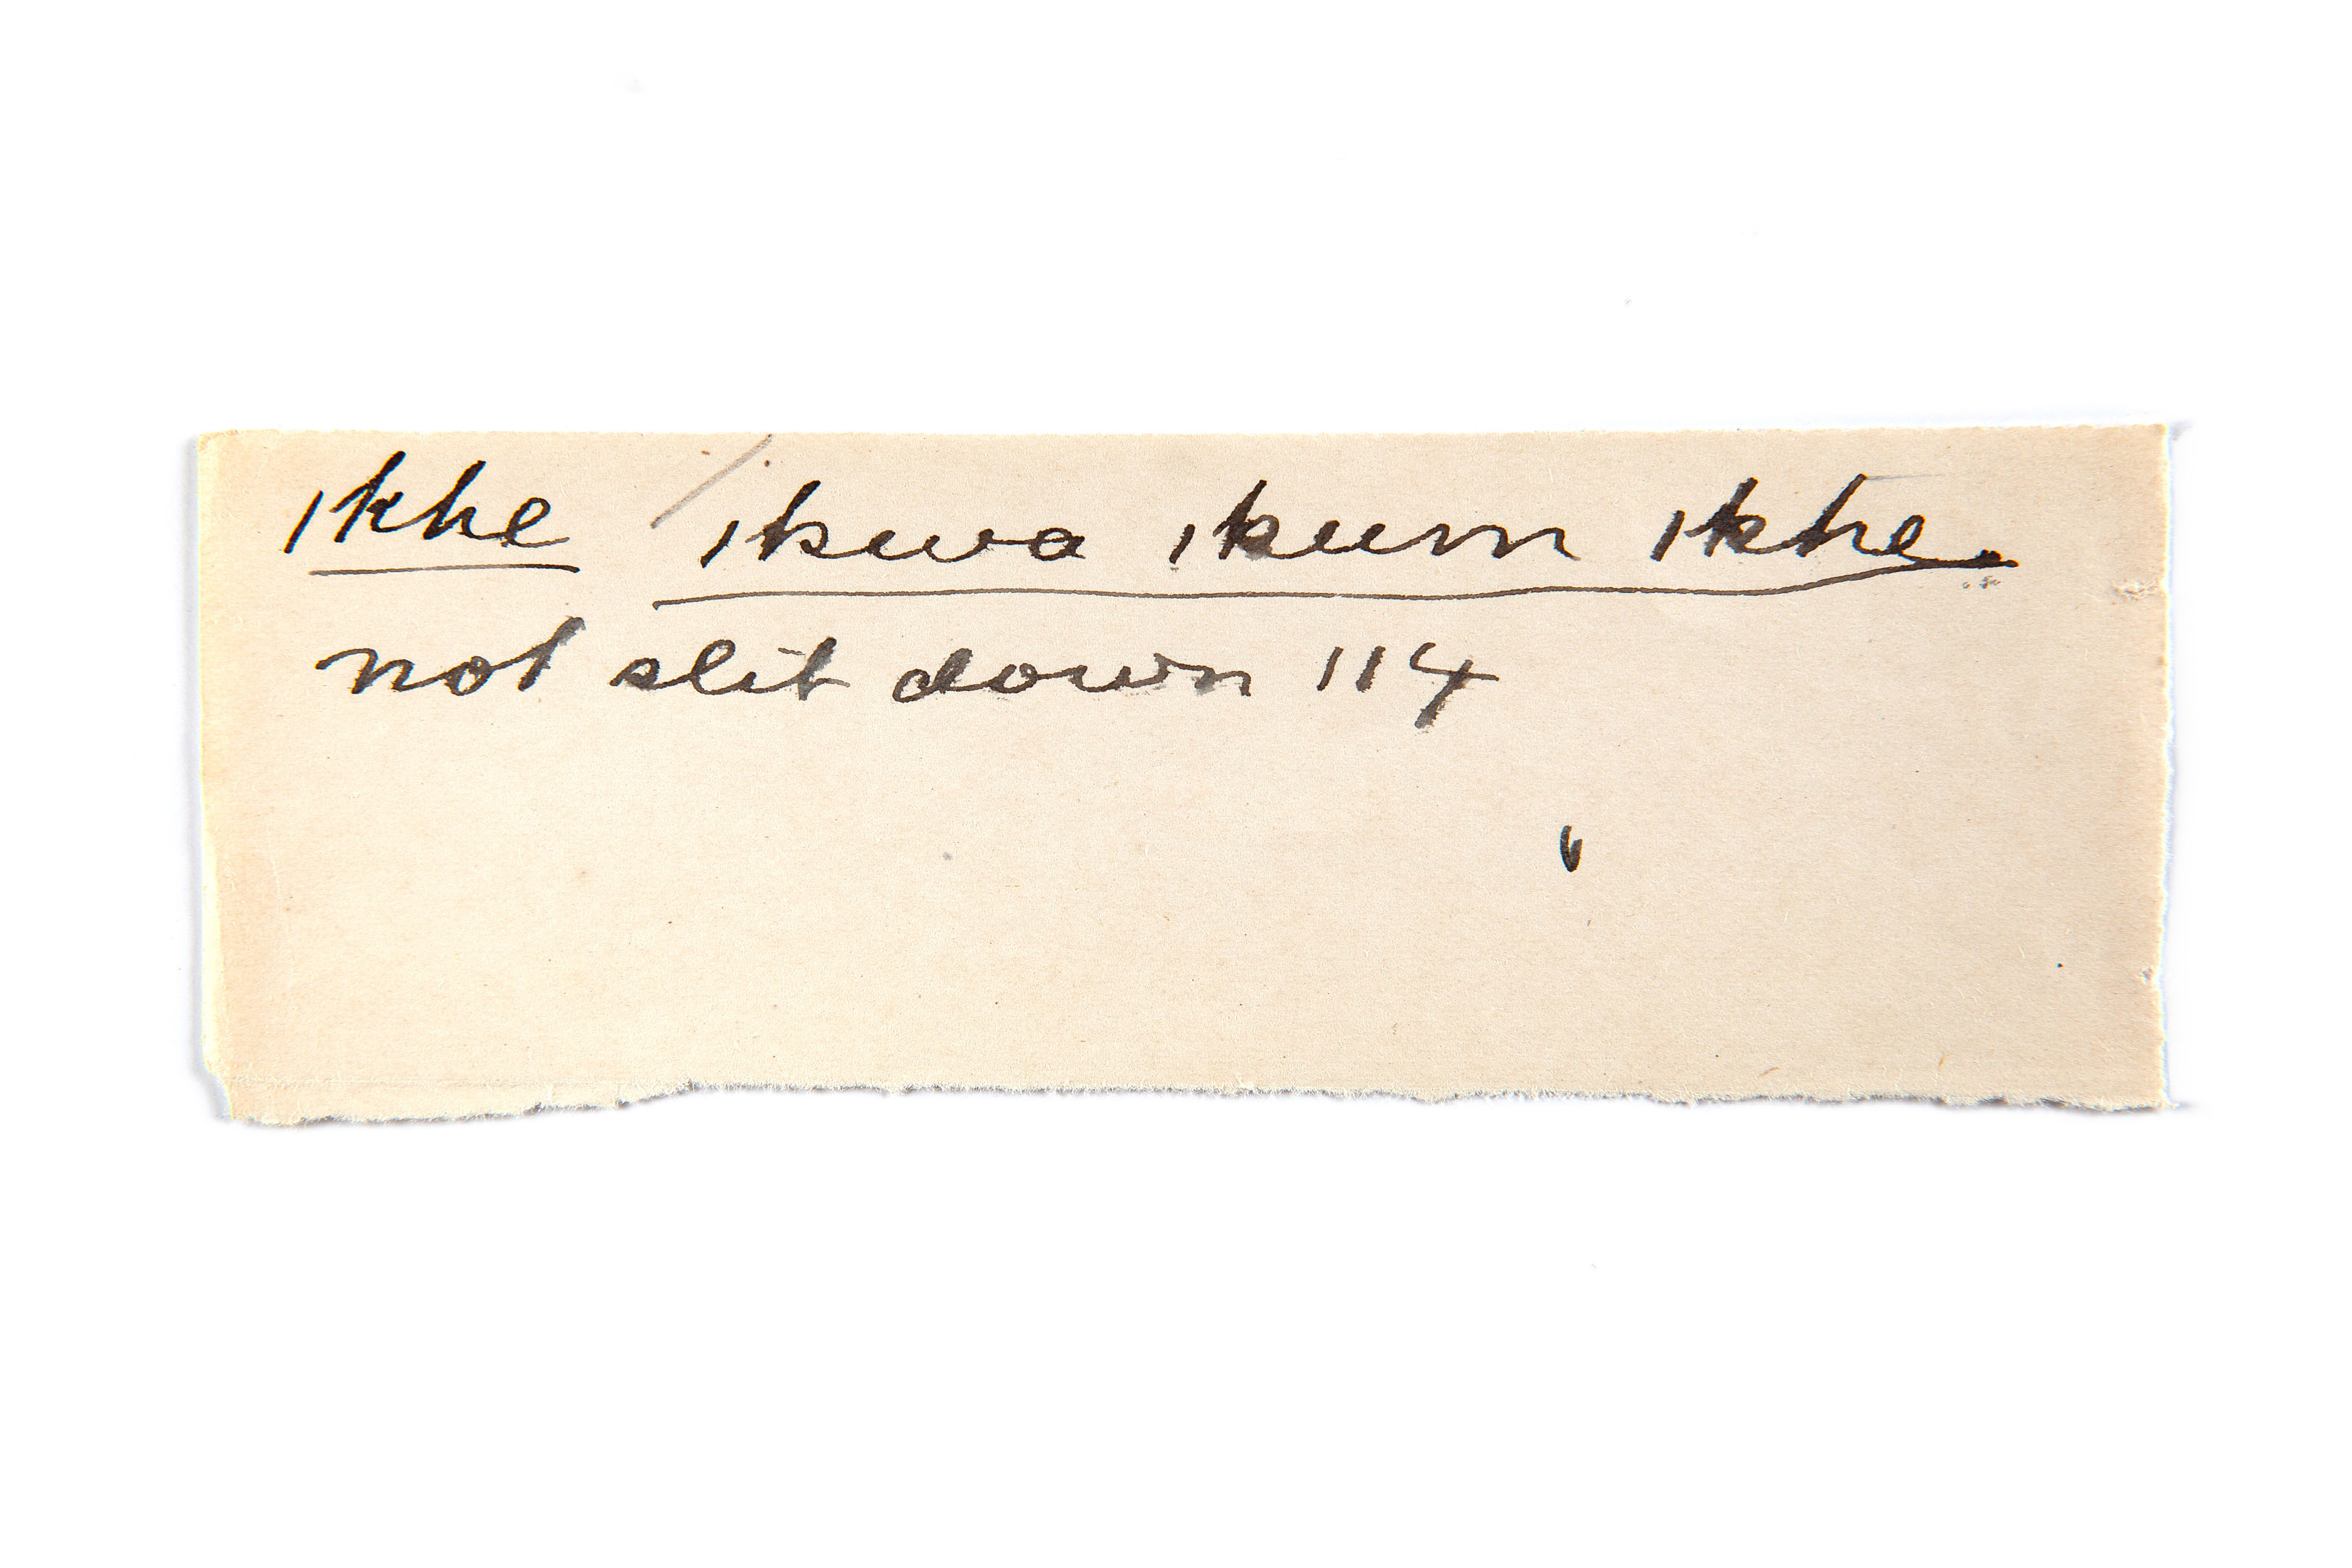 ikhe ikwa ikum ikhe.
not slit down 114